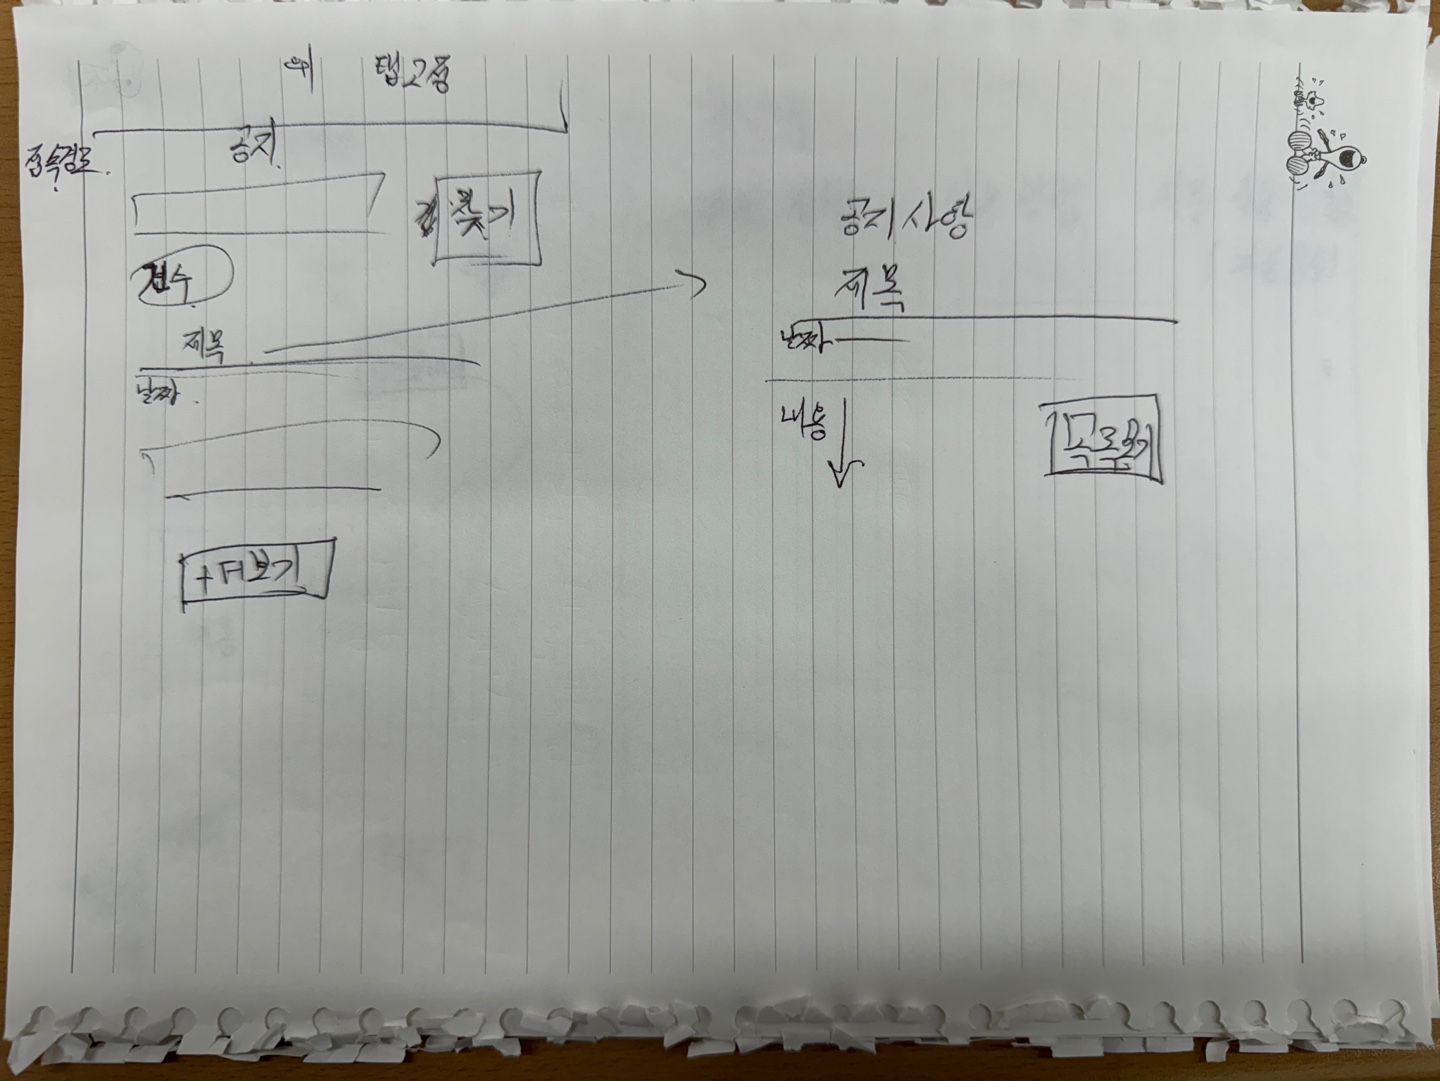 위 탭고중
접속경로.
공지
찾기
건수
제목
날짜.
+더보기
공지사항
제목
날짜
내용
목록보기